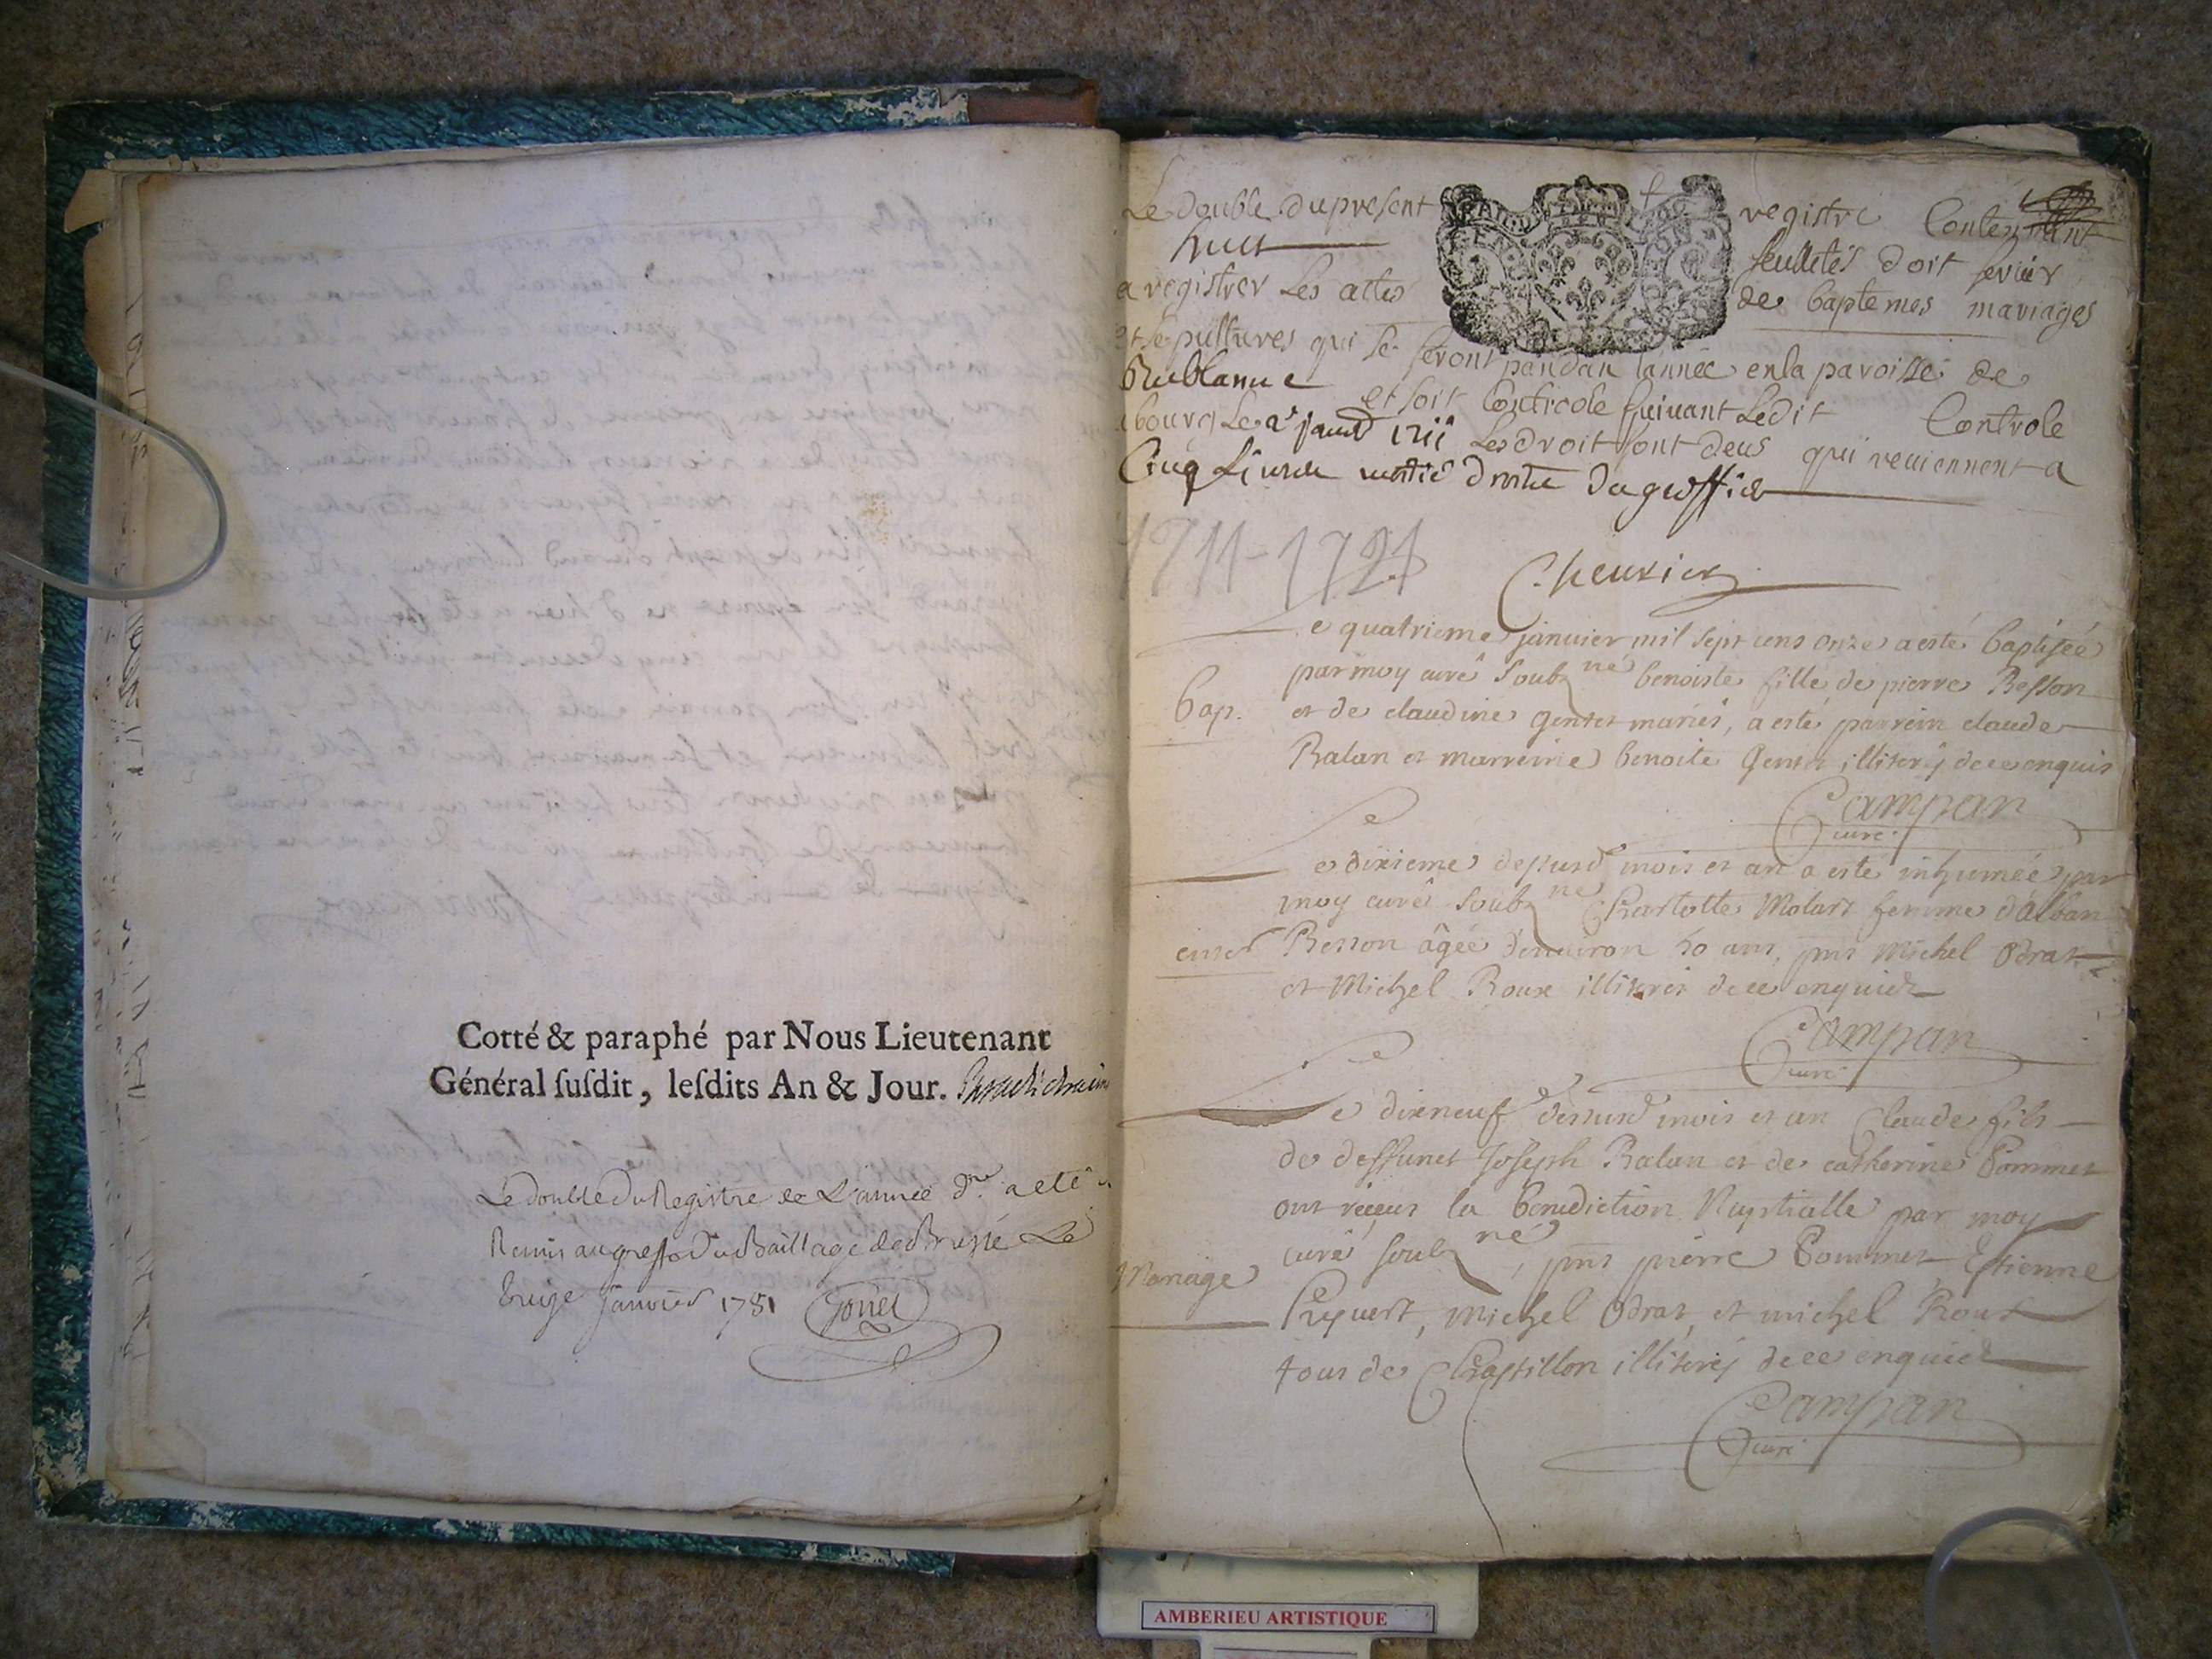 Cotté & paraphé par Nous Lieutenant
Général ſuſdit, leſdits An & Jour.
Le double du Registre de L'année d.re a eté
Remis au greffe du Bailliage de Bresse Le
treize janvier 1781 Goiiet
Le double du present registre Contenant
huit feulletes doit servir
a registrer Les actes de baptemes mariages
et sepultures qui se feront pandan lannée en la paroisse de
et soit Controole suivant Ledit Controle
bourg Le 2e janv 1711 Les droit sont deus qui reviennent a
Cinq Livres
1711-1721
Chevrier
Le quatrieme janvier mil sept cens onze a esté baptisée
par moy curé soubzné benoiste fille de pierre Besson
Bap. et de claudine Gentet mariés, a esté parrein claude
Balan et marreine benoite Gentet illiterés de ce enquis
Campan
curé
Le dixieme dessusd mois et an a esté inhumée par
moy curé soubzné Charlotte Molart femme d'alban
enter Besson âgée d'environ 50 ans, pnts Michel Odrat
et Michel Roux illiterés de ce enquis
Campan
curé
Le dixneuf dessusd mois et an Claude fils
de deffunct Joseph Balan et de catherine Pommet
ont réçeus la benediction Nuptialle par moy
curé soubzné, pnts pierre Pommet Estienne
Mariage
Prepuert, Michel Odrat, et michel Roux
tous de Chastillon illiterés de ce enquis
Campan
curé
AMBERIEU ARTISTIQUE